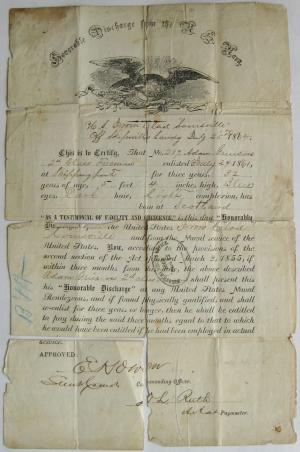 Honorable Discharge from the U. S. Navy.
U. S. Iron Clad Louisville
Off Skipwith's Landing July 25th 1864.
This is to Certify, That No. 219 Adam
2d Class Fireman enlisted July 24 1861,
at Shippingport for three years, 32
years of age, 5 feet 4 inches high, Blue
eyes, Dark hair, Light complexion, has
born at Scotland
"AS A TESTIMONIAL OF FIDELITY AND OBEDIENCE," is this day "Honorably
Discharged" from the United States Iron Clad
Louisville and from the Naval service of the
United States. Now, according to the provisions of the
second section of the Act passed March 2, 1855, if
within three months from this date, the above described
shall present this
his "Honorable Discharge" at any United States Naval
Rendezvous, and if found physically qualified, and shall
re-enlist for three years or longer, then he shall be entitled
to pay during the said three months, equal to that to which
he would have been entitled if he had been employed in actual
service.
APPROVED:
E K Owen
Lieut Comdr Commanding Officer.
Ruth
Paymaster.